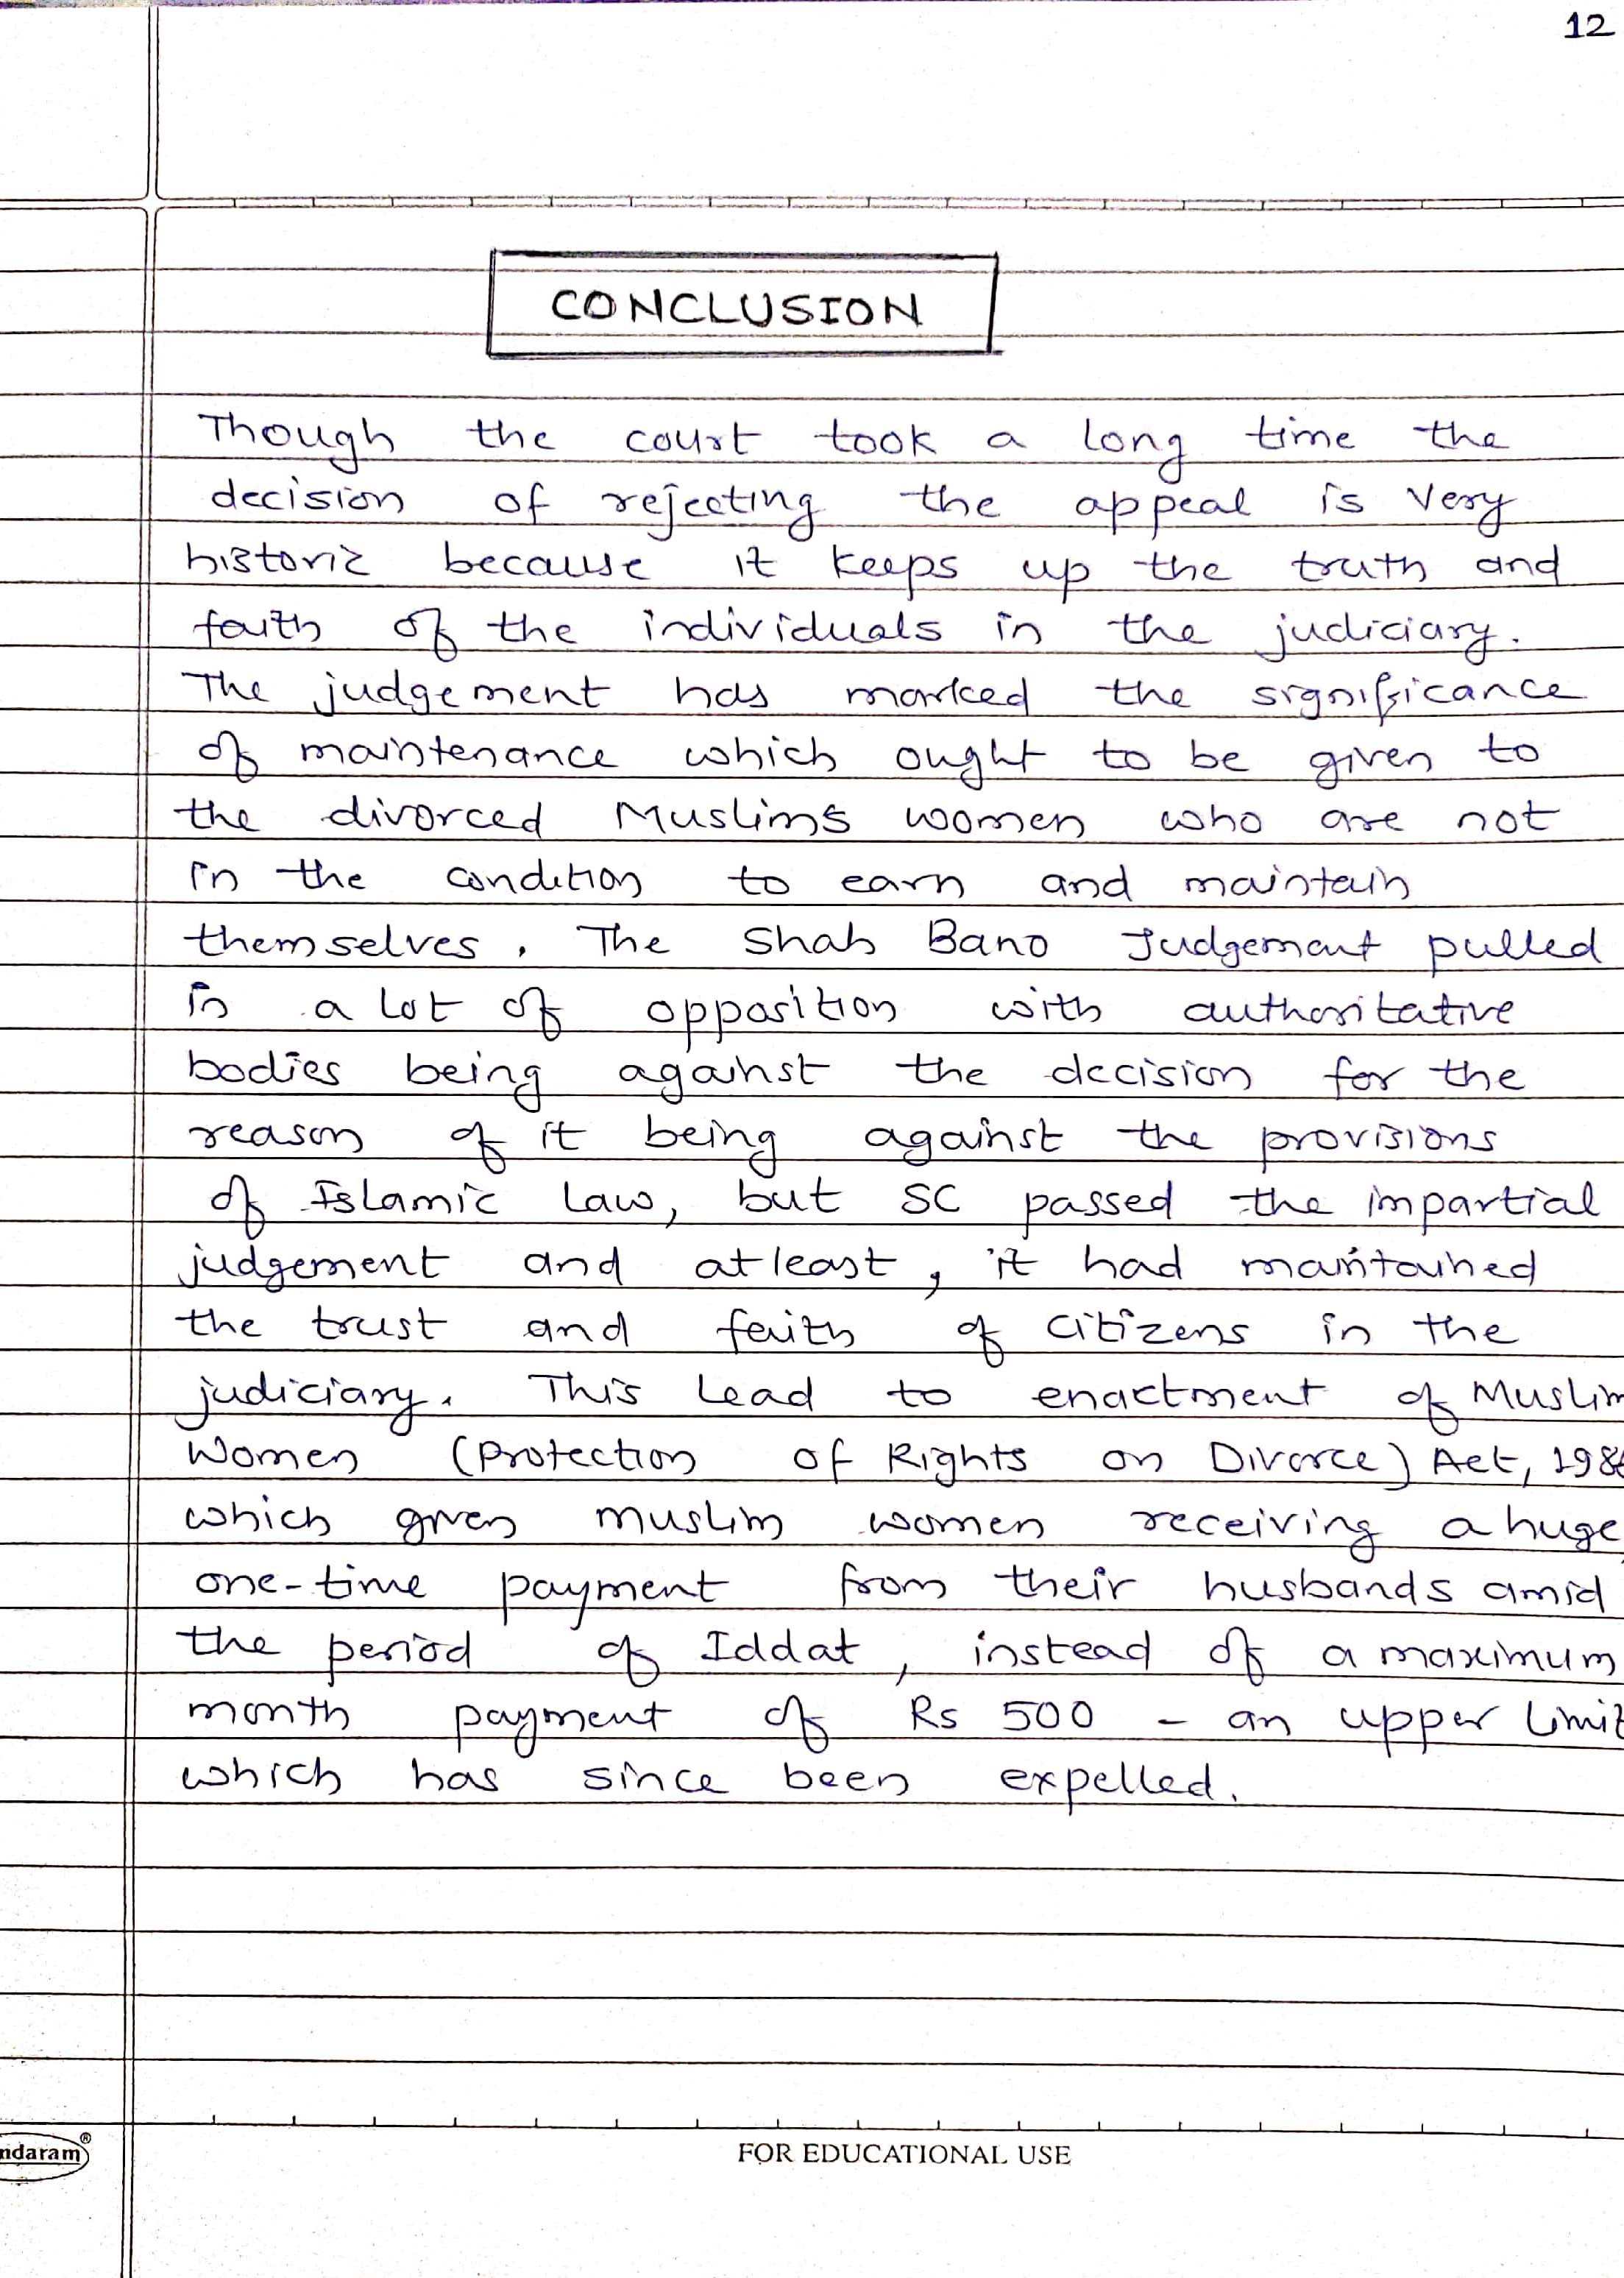 12
CONCLUSION
Though the court took a long time the
decision of rejecting the appeal is very
historic because it keeps up the truth and
faith of the individuals in the judiciary.
The judgement has marked the significance
of maintenance which ought to be given to
the divorced Muslims women who are not
in the condition to earn and maintain
themselves. The Shah Bano Judgement pulled
in a lot of opposition with authoritative
bodies being against the decision for the
reason of it being against the provisions
of Islamic law, but SC passed the impartial
judgement and atleast, it had maintained
the trust and faith of citizens in the
judiciary. This lead to enactment of Muslim
Women (Protection of Rights on Divorce) Act, 1986
which given muslim women receiving a huge,
one-time payment from their husbands amid
the period of Iddat, instead of a maximum
month payment of Rs 500 - an upper limit
which has since been expelled.
ndaram®
FOR EDUCATIONAL USE